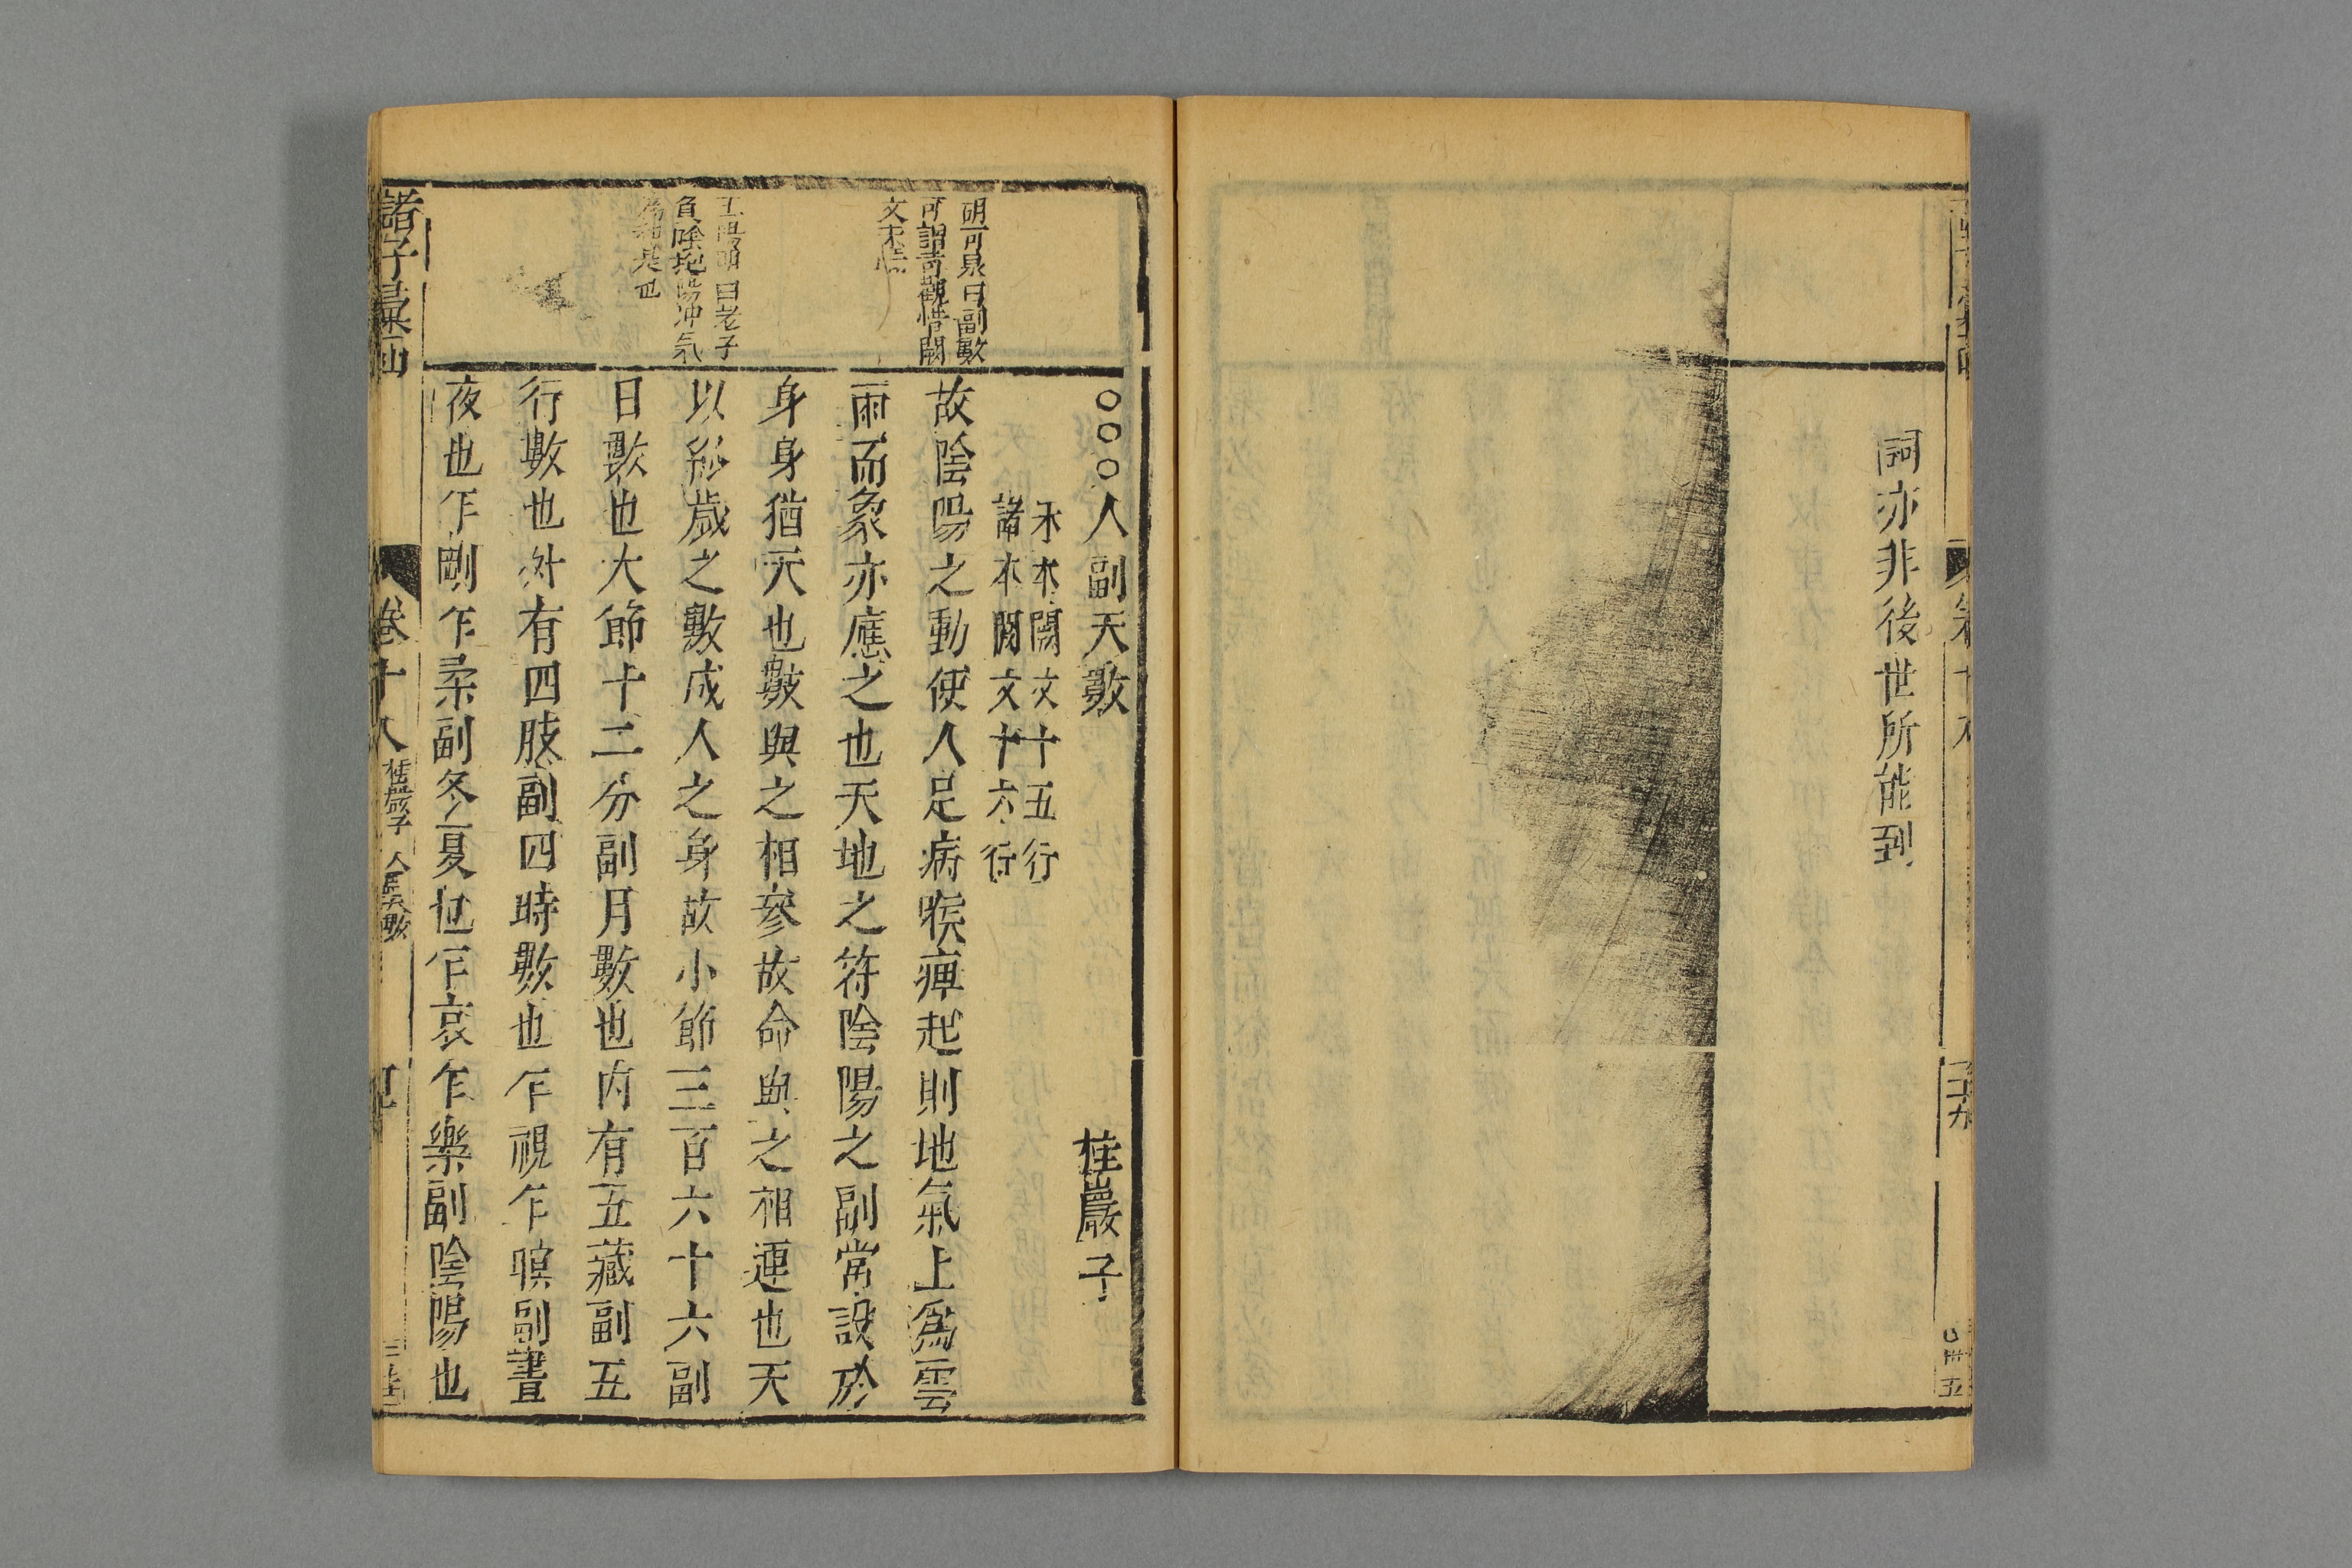 詞亦非後世所能到
胡可泉曰副數
可謂奇觀惜闕
文不
曰老子
負陰抱陽沖氣
是也
○○○人副天數
桂巖子
宋本闕文十五行
諸本闕文十六行
故陰陽之動使人足病喉痺起則地氣上爲雲
雨而象亦應之也天地之符陰陽之副常設於
身身猶天也數與之相參故命與之相連也天
以終歲之數成人之身故小節三百六十六副
日數也大節十二分副月數也內有五藏副五
行數也外有四肢副四時數也乍視乍瞑副晝
夜也乍剛乍柔副冬夏也乍哀乍樂副陰陽也
諸子彙函
卷十八
桂巖子
人副天數